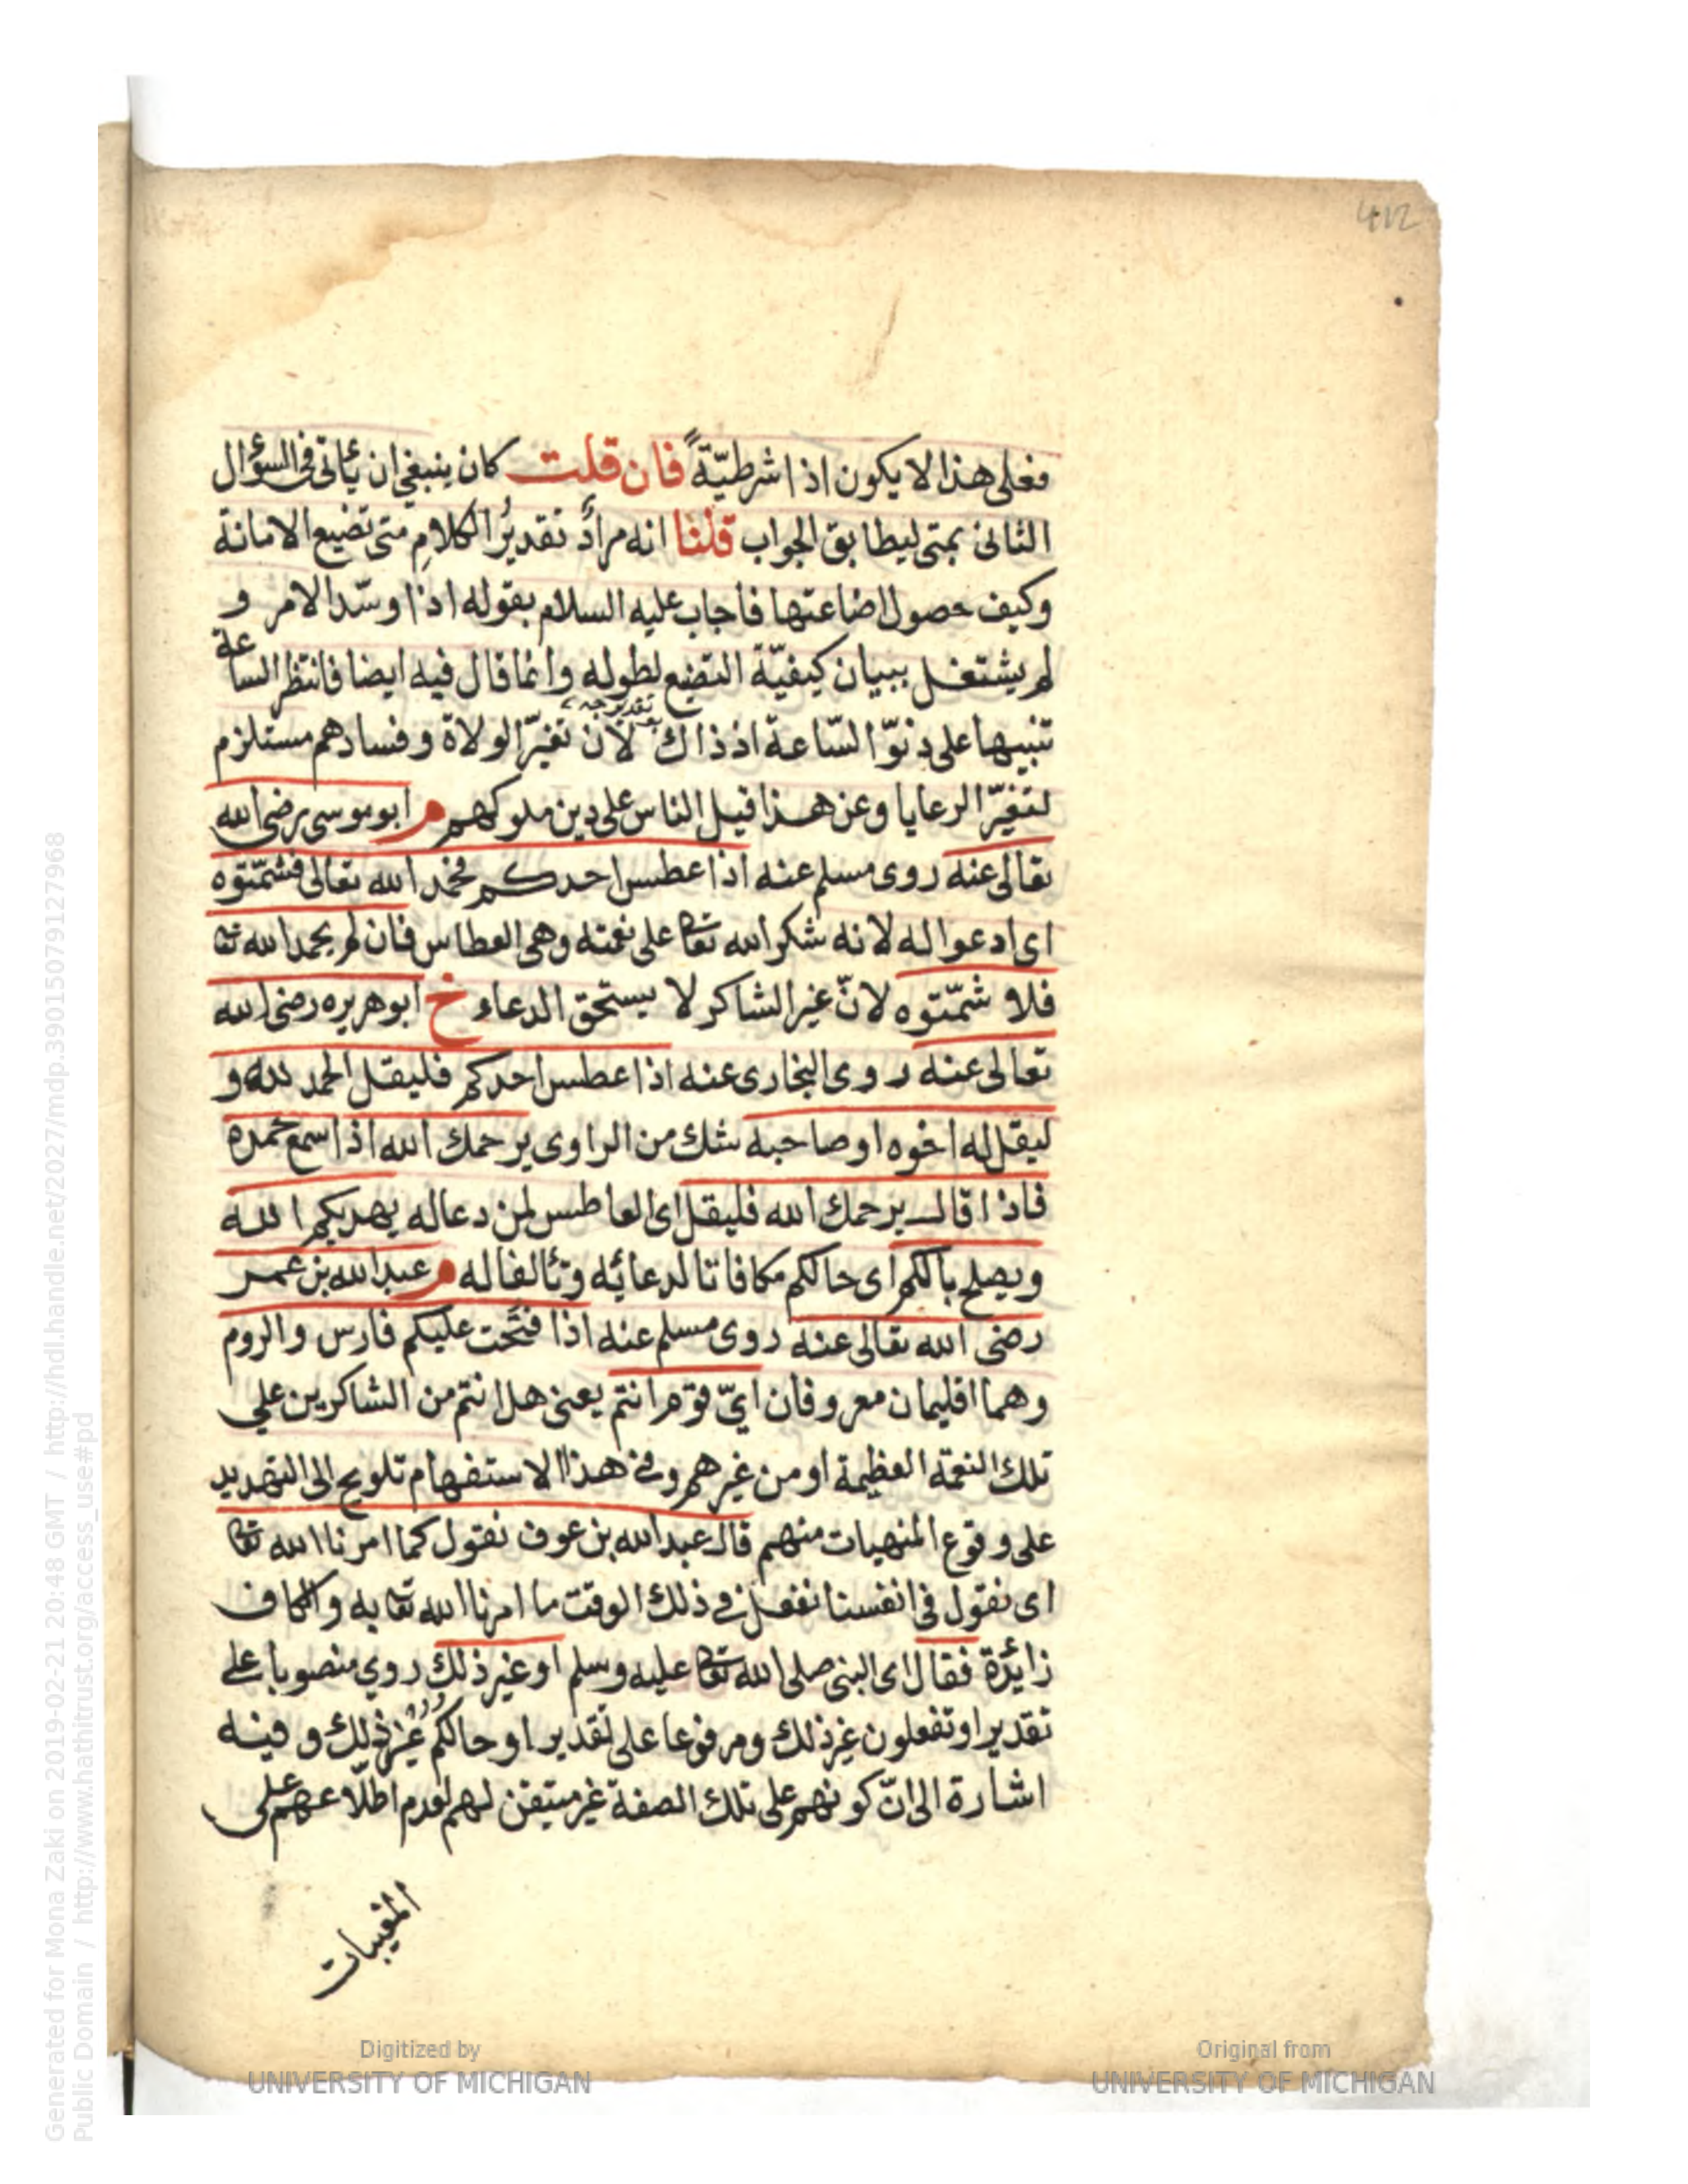 412
فعلى هذا لا يكون اذا شرطيّةً فان قلت كان ينبغي ان يأتى فى السؤال
الثانى بمتى ليطابق الجواب قلنا انه مرادٌ تقديرُ الكلامِ متى تضيع الامانة
وكيف حصول اضاعتها فاجاب عليه السلام بقوله اذا وسّد الامر و
لم يشتغل ببيان كيفيّة التضيع لطوله وانما قال فيه ايضا فانتظر الساعة
تنبيها على دنوّ السّاعة اذ ذاك لان تغيّر الولاة وفسادهم مستلزم
لتغيّر الرعايا وعن هذا قيل الناس على دين ملوكهم م ابو موسى رضى الله
تعالى عنه روى مسلم عنه اذا عطس احدكم فحمد الله تعالى فشمّتوه
اى ادعوا له لانه شكر الله تعا على نعمته وهى العطاس فان لم يحمد الله تعا
فلا شمّتوه لانّ غير الشاكر لا يستحق الدعاء خ ابو هريره رضى الله
تعالى عنه روى البخارى عنه اذا عطس احدكم فليقل الحمد لله و
ليقل له اخوه او صاحبه شك من الراوى يرحمك الله اذا سمع حمده
فاذا قال يرحمك الله فليقل اى العاطس لمن دعا له يهديكم الله
ويصلح بالكم اى حالكم مكافاتا لدعائه وتألفا له م عبد الله بن عمر
رضى الله تعالى عنه روى مسلم عنه اذا فتحت عليكم فارس والروم
وهما اقليمان معروفان ايّ قوم انتم يعنى هل انتم من الشاكرين علي
تلك النعمة العظيمة او من غيرهم وفى هذا الاستفهام تلويح الى التهديد
على وقوع المنهيات منهم قال عبد الله بن عوف نقول كما امرنا الله تعا
اى نقول فى انفسنا نفعل فى ذلك الوقت ما امرنا الله تعا به والكاف
زايدة فقال اى النبى صلى الله تعا عليه وسلم او غير ذلك روي منصوبا على
تقدير او تفعلون غير ذلك ومرفوعا على تقدير او حالكم غيرُ ذلك وفيه
اشارة الى انّ كونهم على تلك الصفة غير متيقن لهم لعدم اطلاعهم على
المغيبات
Generated for Mona Zaki on 2019-02-21 20:48 GMT / http://hdl.handle.net/2027/mdp.39015079127968
Public Domain / http://www.hathitrust.org/access_use#pd
Digitized by
UNIVERSITY OF MICHIGAN
Original from
UNIVERSITY OF MICHIGAN